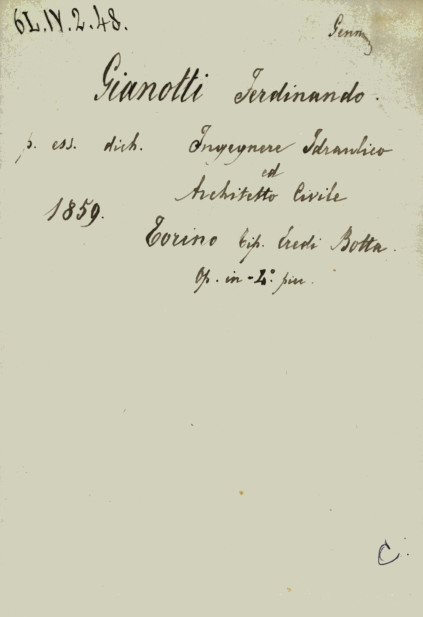 6L.IV.2.48.
Gianotti Ferdinando.
p. ess. dich. Ingegnere Idraulico
ed
Architetto Civile
1859.
Torino Tip. Eredi Botta.
Op. in-4.° picc.
C.